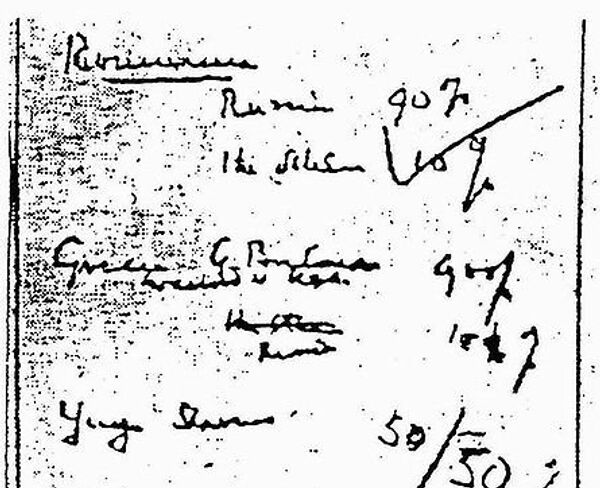 Roumania
Russia 90%
The others 10%
Greece G. Britain 90%
in accord with USA
The others
Russia 10%
Yugo Slavia 50/50